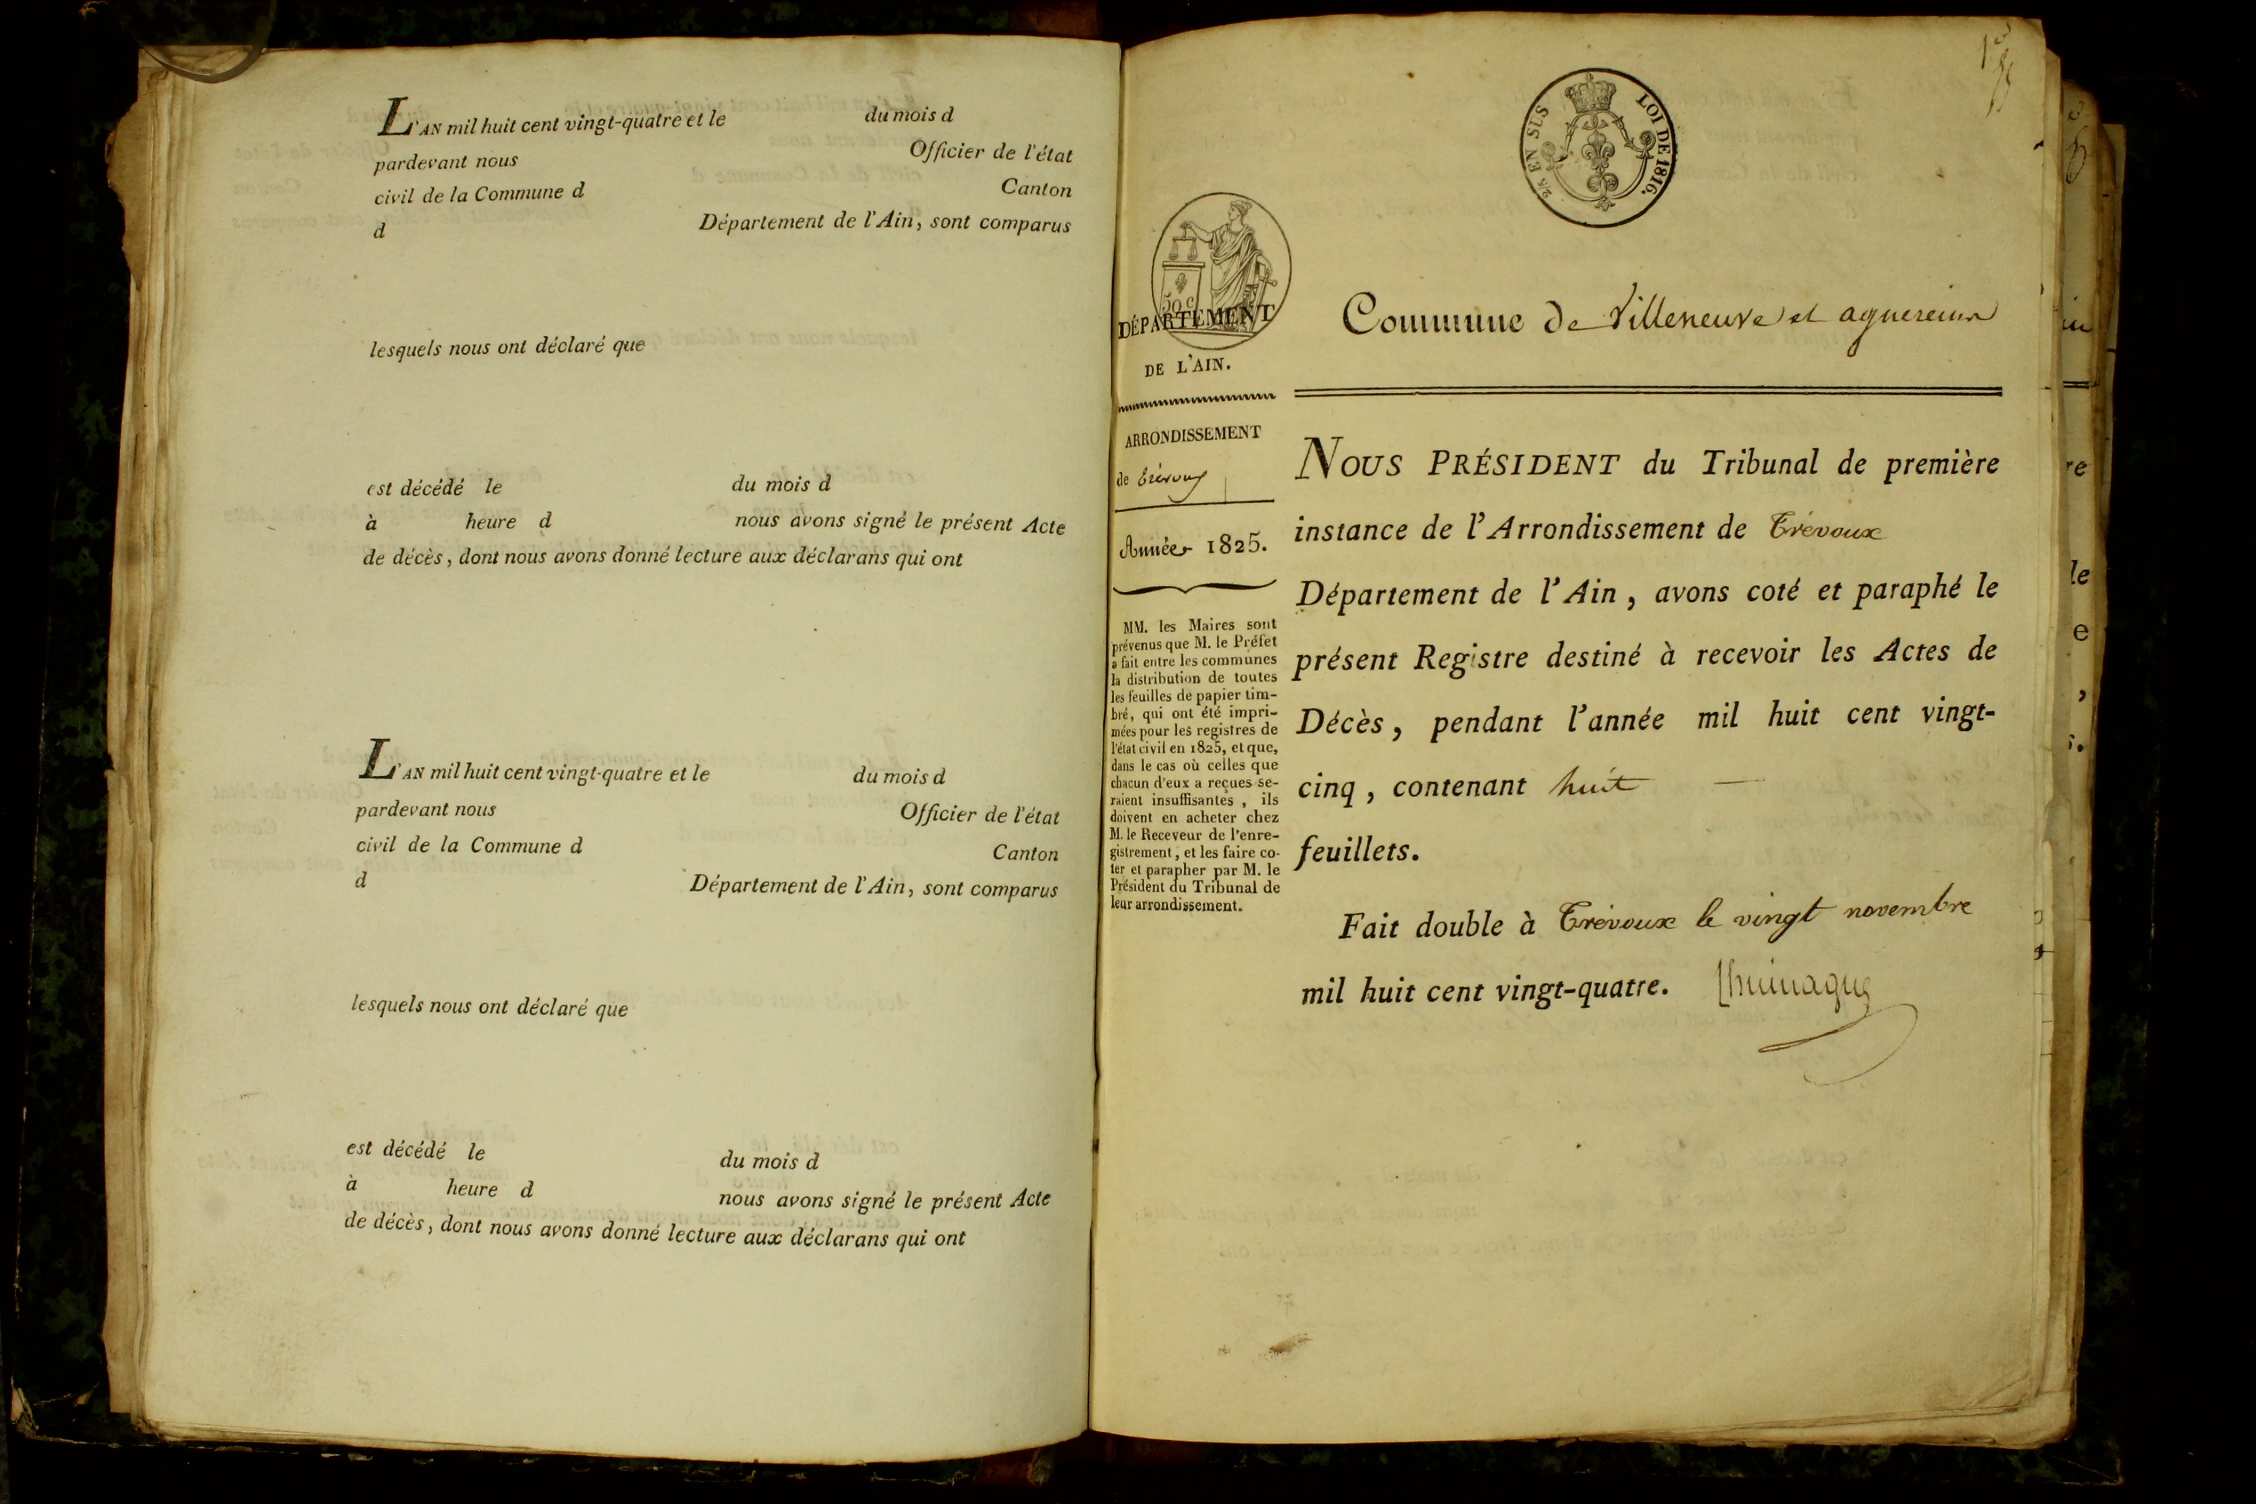 L'AN mil huit cent vingt-quatre et le du mois d
pardevant nous Officier de l'état
civil de la Commune d Canton
d Département de l'Ain, sont comparus
lesquels nous ont déclaré que
est décédé le du mois d
à heure d nous avons signé le présent Acte
de décès, dont nous avons donné lecture aux déclarans qui ont
L'AN mil huit cent vingt-quatre et le du mois d
pardevant nous Officier de l'état
civil de la Commune d Canton
d Département de l'Ain, sont comparus
lesquels nous ont déclaré que
est décédé le du mois d
à heure d nous avons signé le présent Acte
de décès, dont nous avons donné lecture aux déclarans qui ont
EN SUS LOI DE 1816.
50 c
DÉPARTEMENT
DE L'AIN.
ARRONDISSEMENT
de Trévoux
Année 1825.
MM. les Maires sont
prévenus que M. le Préfet
a fait entre les communes
la distribution de toutes
les feuilles de papier tim-
bré, qui ont été impri-
mées pour les registres de
l'état civil en 1825, et que,
dans le cas où celles que
chacun d'eux a reçues se-
raient insuffisantes, ils
doivent en acheter chez
M. le Receveur de l'enre-
gistrement, et les faire co-
ter et parapher par M. le
Président du Tribunal de
leur arrondissement.
Commune de Villeneuve et agnereins
NOUS PRÉSIDENT du Tribunal de première
instance de l'Arrondissement de Trévoux
Département de l'Ain, avons coté et paraphé le
présent Registre destiné à recevoir les Actes de
Décès, pendant l'année mil huit cent vingt-
cinq, contenant huit
feuillets.
Fait double à Trévoux le vingt novembre
mil huit cent vingt-quatre.